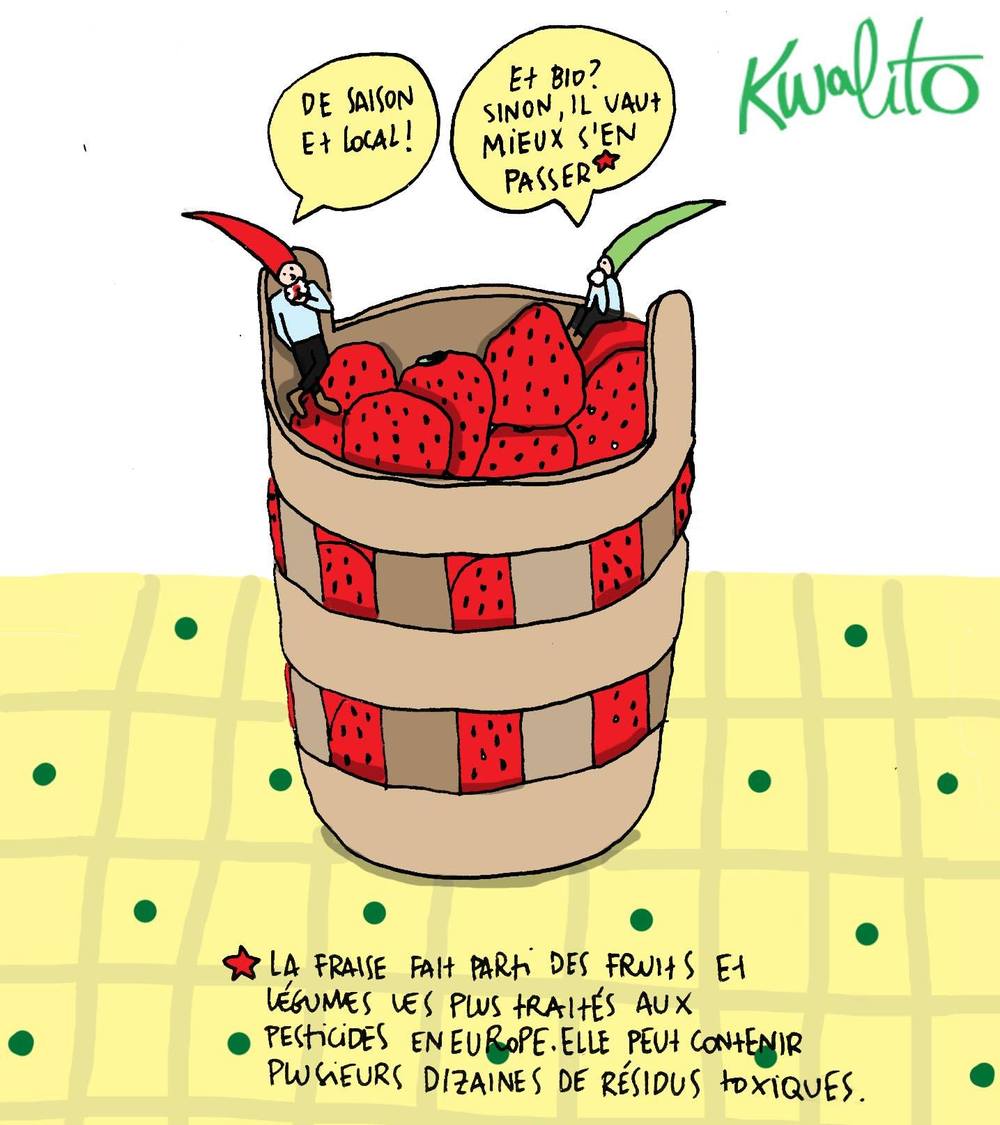 Kwalito
DE SAISON
Et LOCAL!
Et BIO?
SINON, IL VAUt
MIEUX S'EN
PASSER★
★ LA FRAISE FAIt PARti DES FRUItS Et
LÉGUMES LES PLUS tRAItÉS AUX
PEStICIDES EN EUROPE. ELLE PEUt CONtENIR
PLUSIEURS DIZAINES DE RÉSIDUS tOXIQUES.